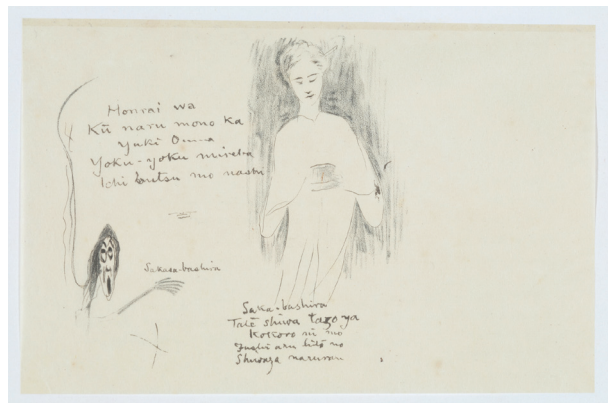 Honrai wa
Kū naru mono ka
Yuki Onna
Yoku-yoku mireba
Ichi butsu mo nashi
Sakasa-bashira
Saka-bashira
Taté shiwa tazo ya
Kokoro ni mo
Fushi aru hito no
Shiwaza naruran